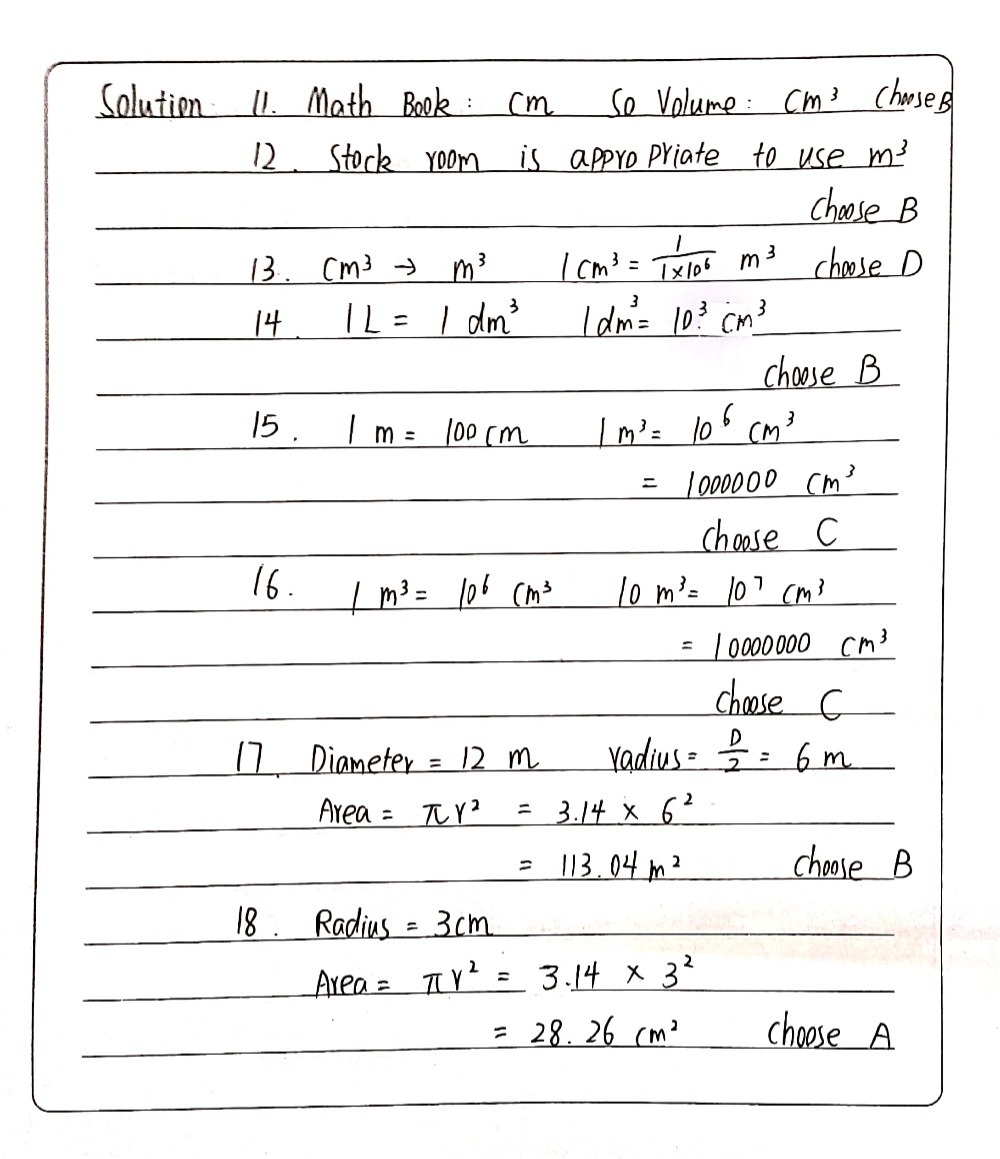 Solution: 11. Math Book: cm So Volume: cm³ Choose B
12. Stock room is appropriate to use m³
Choose B
13. cm³ → m³ 1 cm³ = 1/(1×10⁶) m³ choose D
14. 1 L = 1 dm³ 1 dm³ = 10³ cm³
choose B
15. 1 m = 100 cm 1 m³ = 10⁶ cm³
= 1000000 cm³
Choose C
16. 1 m³ = 10⁶ cm³ 10 m³ = 10⁷ cm³
= 10000000 cm³
Choose C
17. Diameter = 12 m radius = D/2 = 6 m
Area = πr² = 3.14 × 6²
= 113.04 m² Choose B
18. Radius = 3cm
Area = πr² = 3.14 × 3²
= 28.26 cm² Choose A